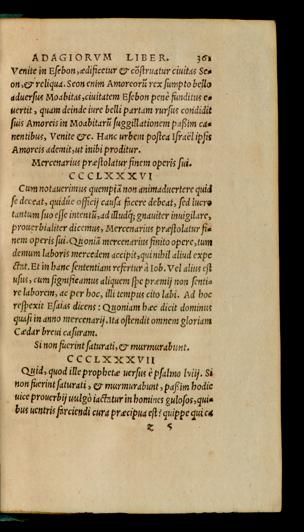 ADAGIORVM LIBER. 361
Venite in Esebon, ædificetur & cõstruatur ciuitas Se-
on, & reliqua. Seon enim Amoreorũ rex sumpto bello
aduersus Moabitas, ciuitatem Esebon penè funditus e-
uertit, quam deinde iure belli partam rursus condidit
suis Amoreis in Moabitarũ suggillationem paßim ca-
nentibus, Venite &c. Hanc urbem postea Israël ipsis
Amoreis ademit, ut inibi proditur.
Mercenarius præstolatur finem operis sui.
CCCLXXXVI
Cum notauerimus quempiã non animaduertere quid
se deceat, quidúe officij causa facere debeat, sed lucro
tantum suo esse intentũ, ad illudq́; gnauiter inuigilare,
prouerbialiter dicemus, Mercenarius præstolatur fi-
nem operis sui. Quoniã mercenarius finito opere, tum
demum laboris mercedem accipit, qui nihil aliud expe
ctat. Et in hanc sententiam refertur à Iob. Vel alius est
usus, cum significamus aliquem spe præmij non senti-
re laborem, ac per hoc, illi tempus cito labi. Ad hoc
respexit Esaias dicens: Quoniam hæc dicit dominus
quasi in anno mercenarij. Ita ostendit omnem gloriam
Cædar breui casuram.
Si non fuerint saturati, & murmurabunt.
CCCLXXXVII
Quid, quod ille prophetæ uersus è psalmo lviij. Si
non fuerint saturati, & murmurabunt, paßim hodie
uice prouerbij uulgò iactatur in homines gulosos, qui-
bus uentris farciendi cura præcipua est? quippe qui ea
z 5